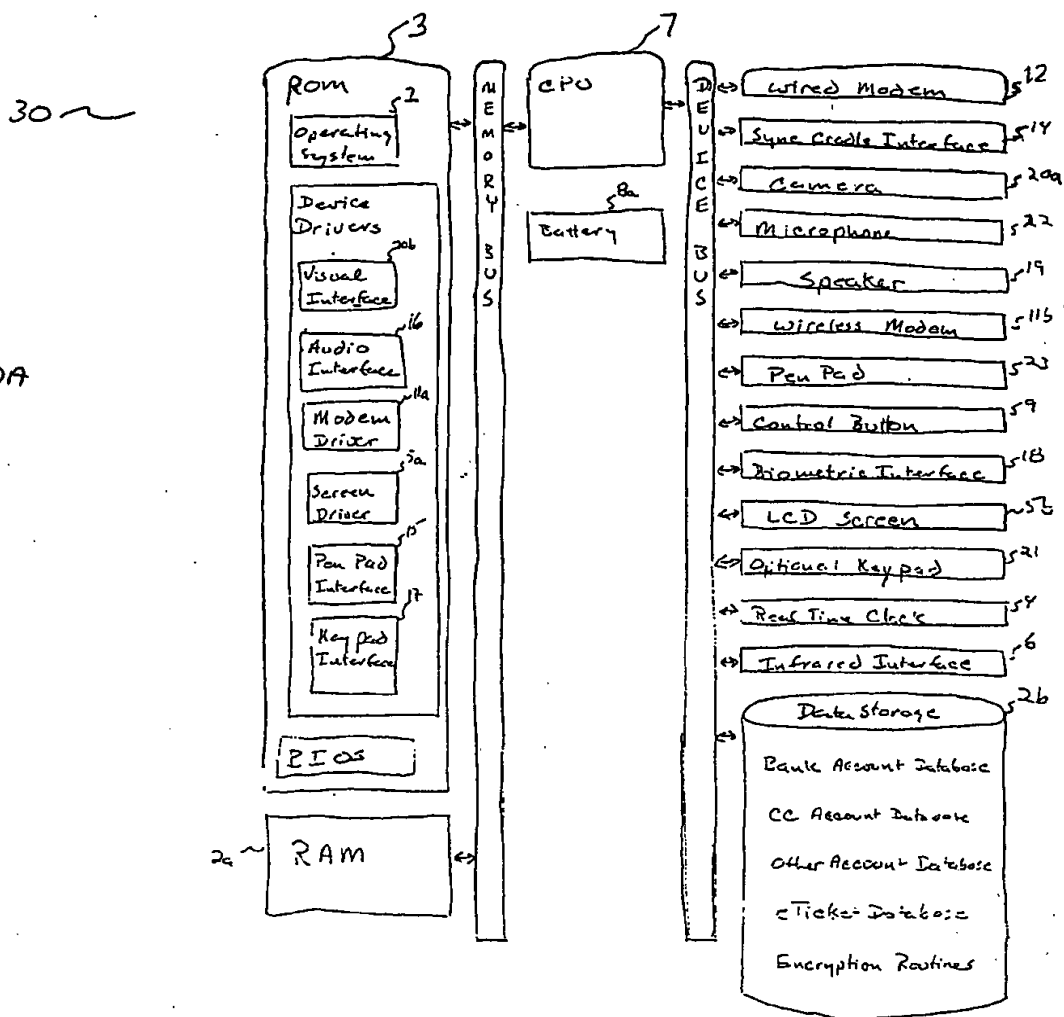 30
3
ROM
1
Operating
System
Device
Drivers
20b
Visual
Interface
16
Audio
Interface
11a
Modem
Driver
5a
Screen
Driver
15
Pen Pad
Interface
17
Keypad
Interface
BIOS
2a
RAM
MEMORY BUS
7
CPU
8a
Battery
DEVICE BUS
Wired Modem
12
Sync Cradle Interface
14
Camera
20a
Microphone
22
Speaker
19
Wireless Modem
11b
Pen Pad
23
Control Button
9
Biometric Interface
18
LCD Screen
5b
Optional Keypad
21
Real Time Clock
4
Infrared Interface
6
Data Storage
2b
Bank Account Database
CC Account Database
Other Account Database
eTicket Database
Encryption Routines